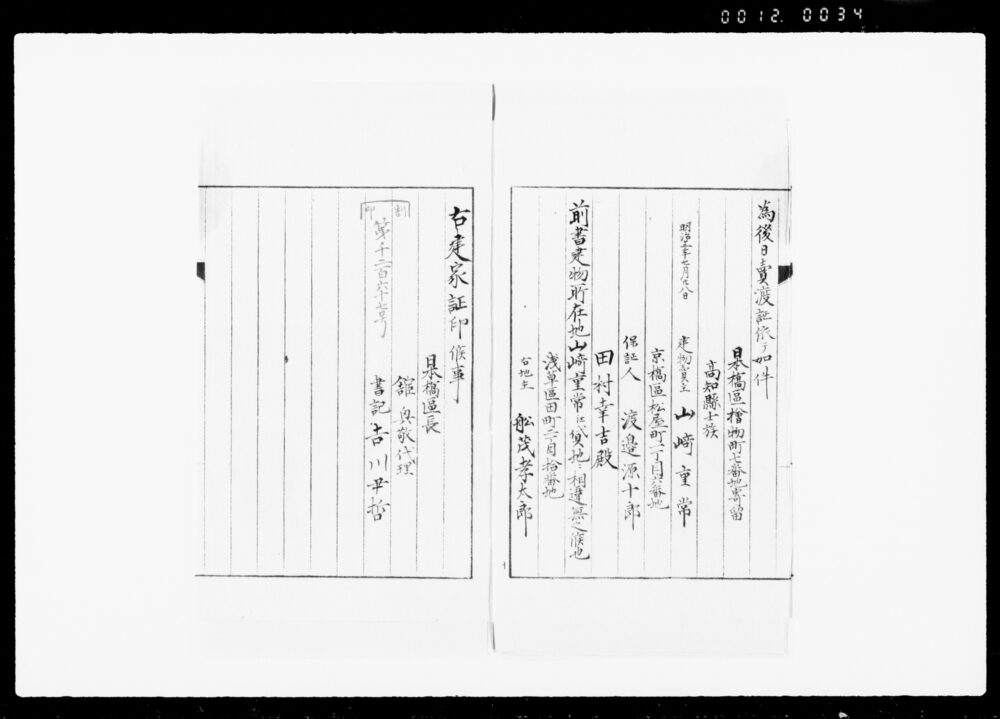 0012. 0034
為後日賣渡証依テ如件
日本橋區檜物町七番地寄留
高知縣士族
建物賣主 山﨑重常
京橋區松屋町二丁目六番地
保証人 渡邉源十郎
田村幸吉殿
前書建物所在地山﨑重常ニ貸地ニ相違無之候也
浅草區田町二丁目拾番地
右地主 舩茂孝太郎
右建家証印候事
割印
第千二百六十七号
日本橋區長
舘興敬代理
書記 吉川